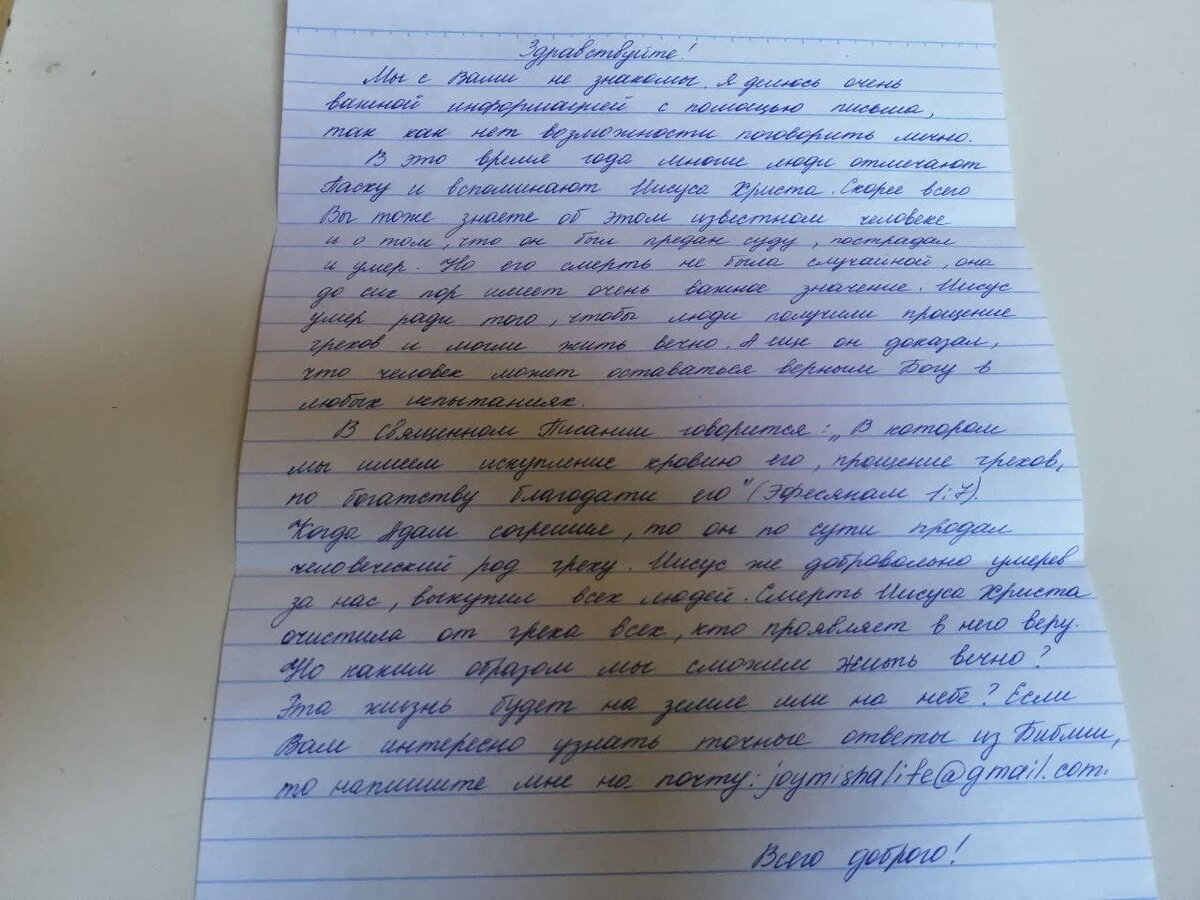 Здравствуйте!
Мы с Вами не знакомы. Я делюсь очень
важной информацией с помощью письма,
так как нет возможности поговорить лично.
В это время года многие люди отмечают
Пасху и вспоминают Иисуса Христа. Скорее всего
Вы тоже знаете об этом известном человеке
и о том, что он был предан суду, пострадал
и умер. Но его смерть не была случайной, она
до сих пор имеет очень важное значение. Иисус
умер ради того, чтобы люди получили прощение
грехов и могли жить вечно. А еще он доказал,
что человек может оставаться верным Богу в
любых испытаниях.
В Священном Писании говорится: „В котором
мы имеем искупление кровию его, прощение грехов,
по богатству благодати его" (Эфесянам 1:7).
Когда Адам согрешил, то он по сути продал
человеческий род греху. Иисус же добровольно умерев
за нас, выкупил всех людей. Смерть Иисуса Христа
очистила от греха всех, кто проявляет в него веру.
Но каким образом мы сможем жить вечно?
Эта жизнь будет на земле или на небе? Если
Вам интересно узнать точные ответы из Библии,
то напишите мне на почту: joymishalife@gmail.com.
Всего доброго!